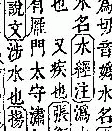 爲切音嬀水
水名水經注潙
也又疾也張
有雁門太守瀟
說文涉水也揚